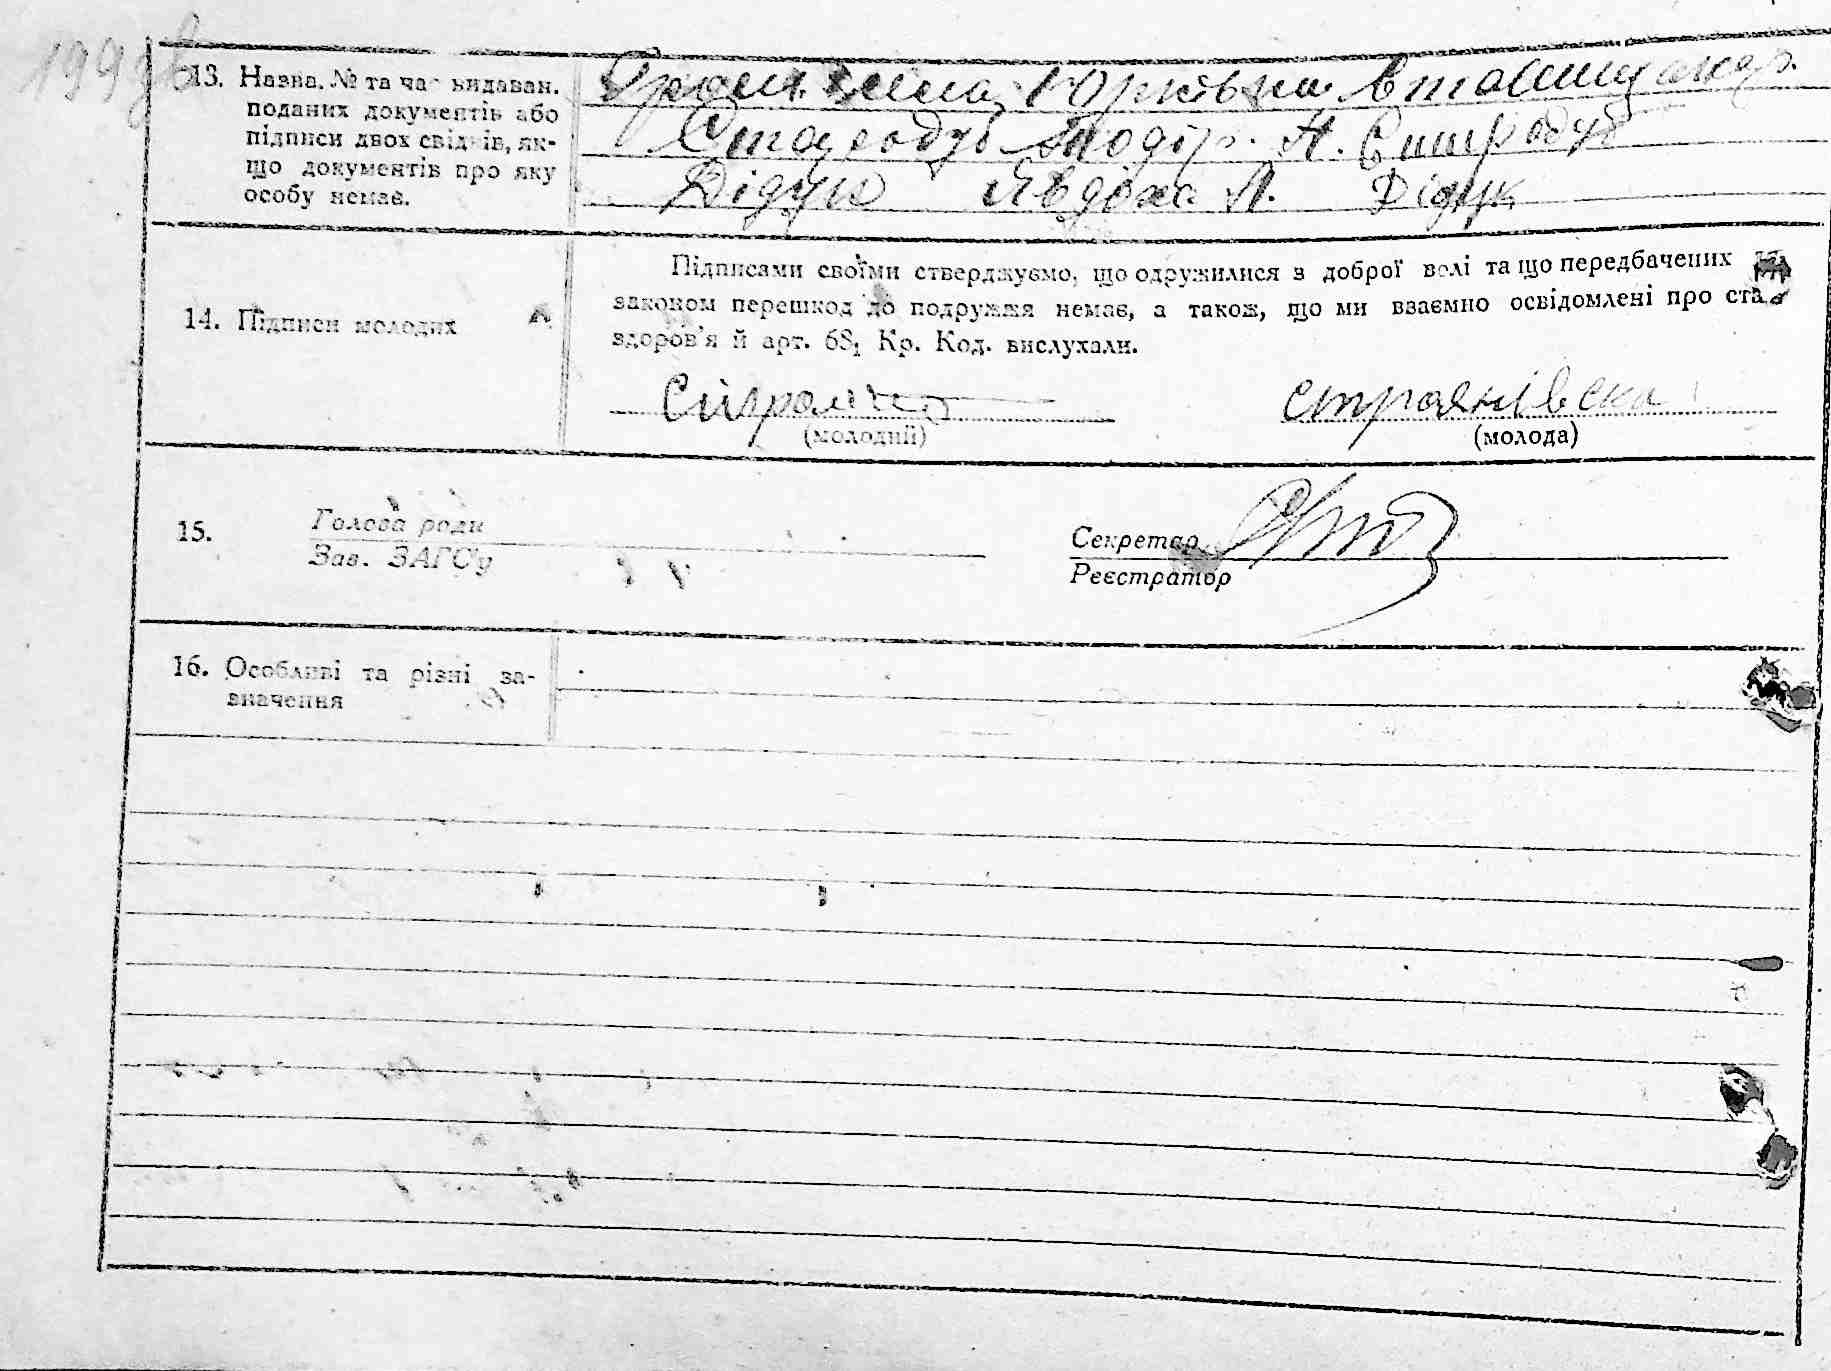 199зв
13. Назва, № та час видаван.
поданих документів або
підписи двох свідків, як-
що документів про яку
особу немає.
Гром. села Юрківка
Стародуб Тодір. А.
Дідук Явдоха А. Дідук
14. Підписи молодих
Підписами своїми стверджуємо, що одружилися з доброї волі та що передбачених
законом перешкод до подружжя немає, а також, що ми взаємно освідомлені про ста
здоров'я й арт. 68₁ Кр. Код. вислухали.
(молодий)
стрянівска
(молода)
15.
Голова ради
Зав. ЗАГС'у
Секретар
Реєстратор
16. Особливі та різні за-
значення